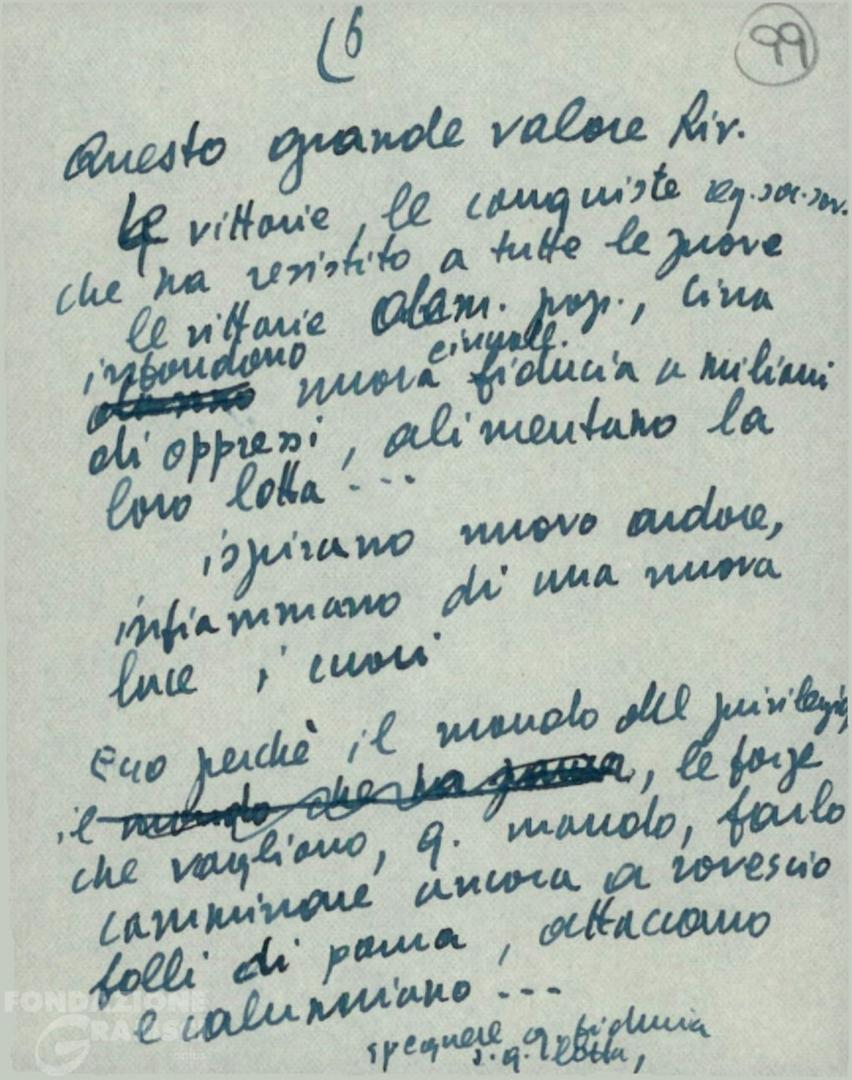 (6
99
Questo grande valore Riv.
Le vittorie, le conquiste
che ha resistito a tutte le prove
le vittorie dem. pop., Cina
infondono
nuova fiducia a milioni
di oppressi, alimentano la
loro lotta ...
ispirano nuovo ardore,
infiammano di una nuova
luce i cuori
Ecco perchè il mondo del privilegio
il mondo che ha paura, le forze
che vogliono, q. mondo, farlo
camminare ancora a rovescio
folli di paura, attaccano
e calunniano ...
spegnere q. fiducia
s. q. lotta,
FONDAZIONE
GRAMSCI